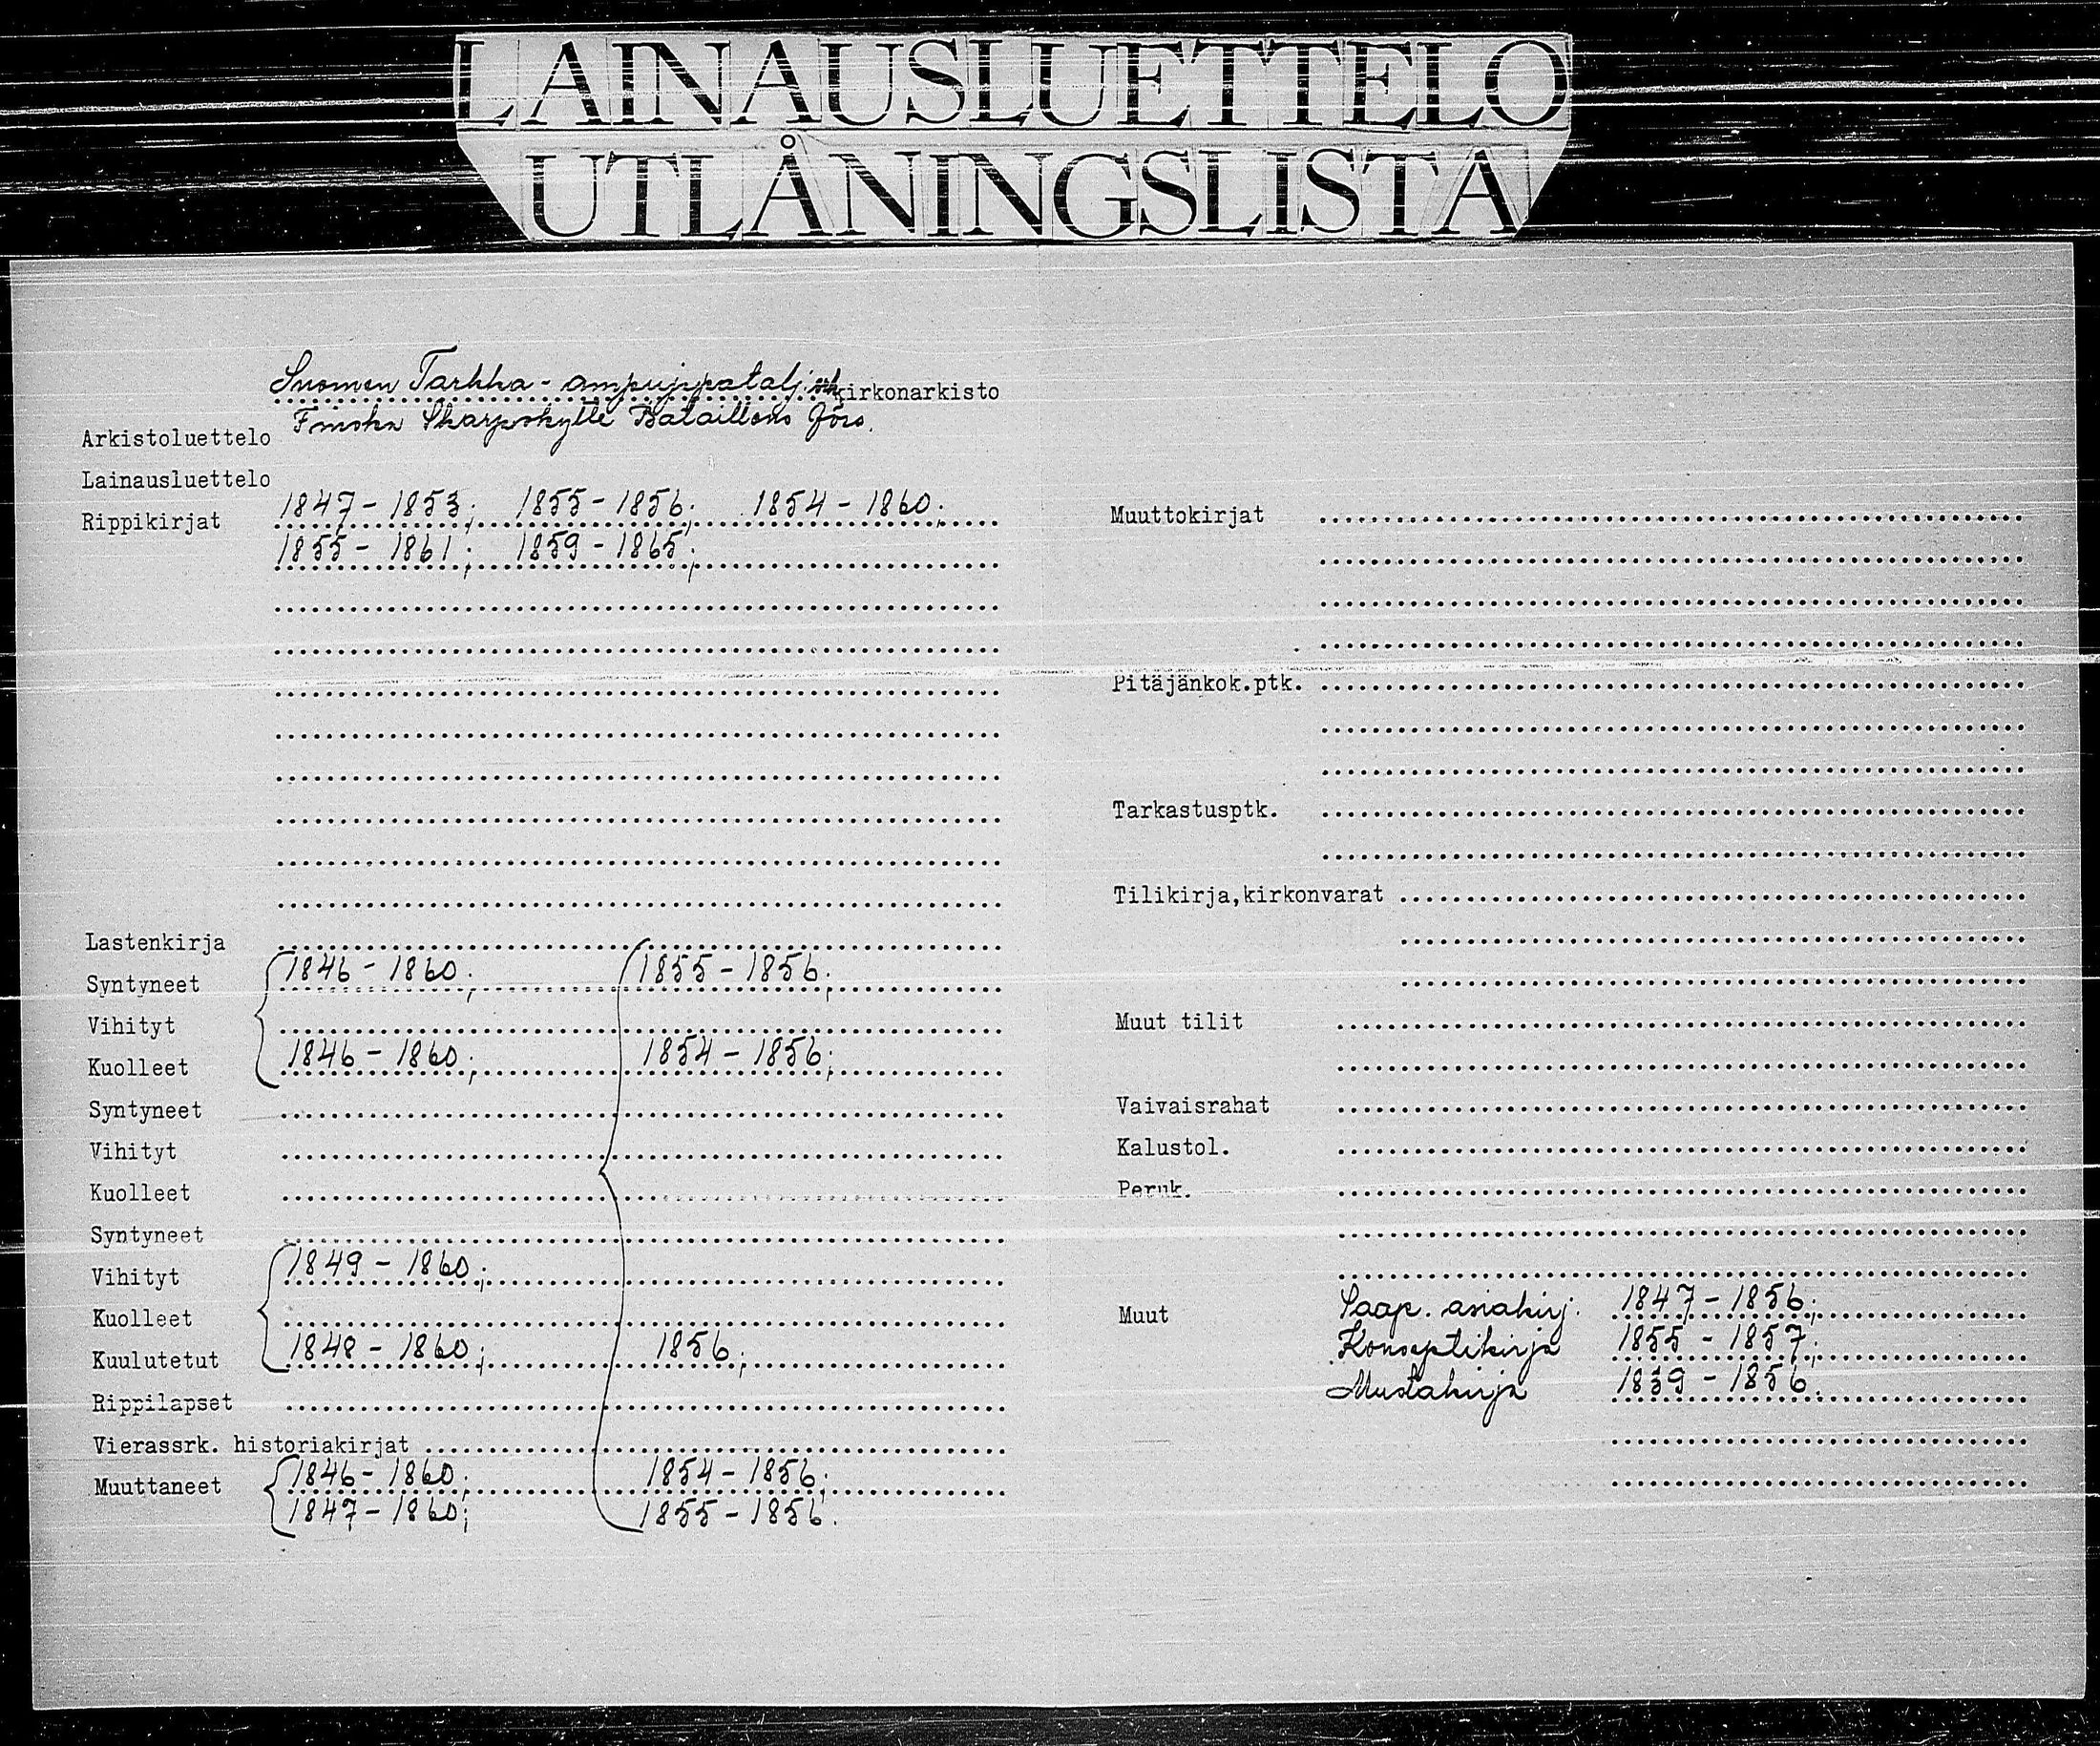 LAINAUSLUETTELO
UTLÅNINGSLISTA
Suomen Tarkka-ampujapatalj. srk kirkonarkisto
Finska Skarpskytte BataillonsFörs.
Arkistoluettelo
Lainausluettelo
Rippikirjat 1847-1853; 1855-1856; 1854-1860;
1855-1861; 1859-1865;
Lastenkirja
Syntyneet 1846-1860; 1855-1856;
Vihityt
Kuolleet 1846-1860; 1854-1856;
Syntyneet
Vihityt
Kuolleet
Syntyneet
Vihityt 1849-1860;
Kuolleet
Kuulutetut 1848-1860; 1856;
Rippilapset
Vierassrk. historiakirjat
Muuttaneet 1846-1860; 1854-1856;
1847-1860; 1855-1856.
Muuttokirjat
Pitäjänkok.ptk.
Tarkastusptk.
Tilikirja,kirkonvarat
Muut tilit
Vaivaisrahat
Kalustol.
Peruk.
Muut Saap. asiakirj. 1847-1856;
Konseptikirja 1855-1857;
Mustakirja 1839-1856.